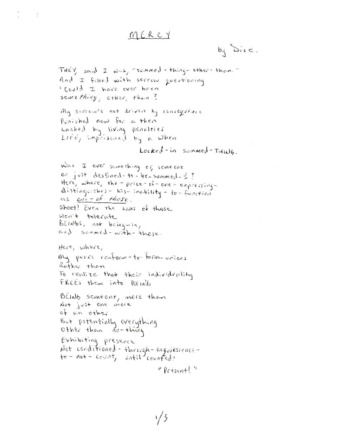 MERCY
by Dre.
THEY, said I was, "summed-thing-other-than."
And I filled with sorrow questioning
"Could I have ever been
something, other, than?
My sorrow's not driven by consequence
Punished now for a then
Lashed by living penalties
LIFE, imprisoned by a when
Locked-in summed-TWOS.
Was I ever something of someone
or just destined-to-be-summed-1?
Here, where, the-price-of-one-expressing-
distinguishes-his-inability-to-function
as one-of those.
Shoot! Even the laws of those
won't tolerate
BEINGS, not being-in,
and summed-with-those.
Here, where,
My peers conform-to-become-unions
Rather than
To realize that their individuality
FREES them into BEING
BEING someone, more than
Not just one more
of an other
But potentially everything
Other than a-thing
Exhibiting presence
Not conditioned-through-expressiones-
to-not-count, until counted:
"Present!"
1/5